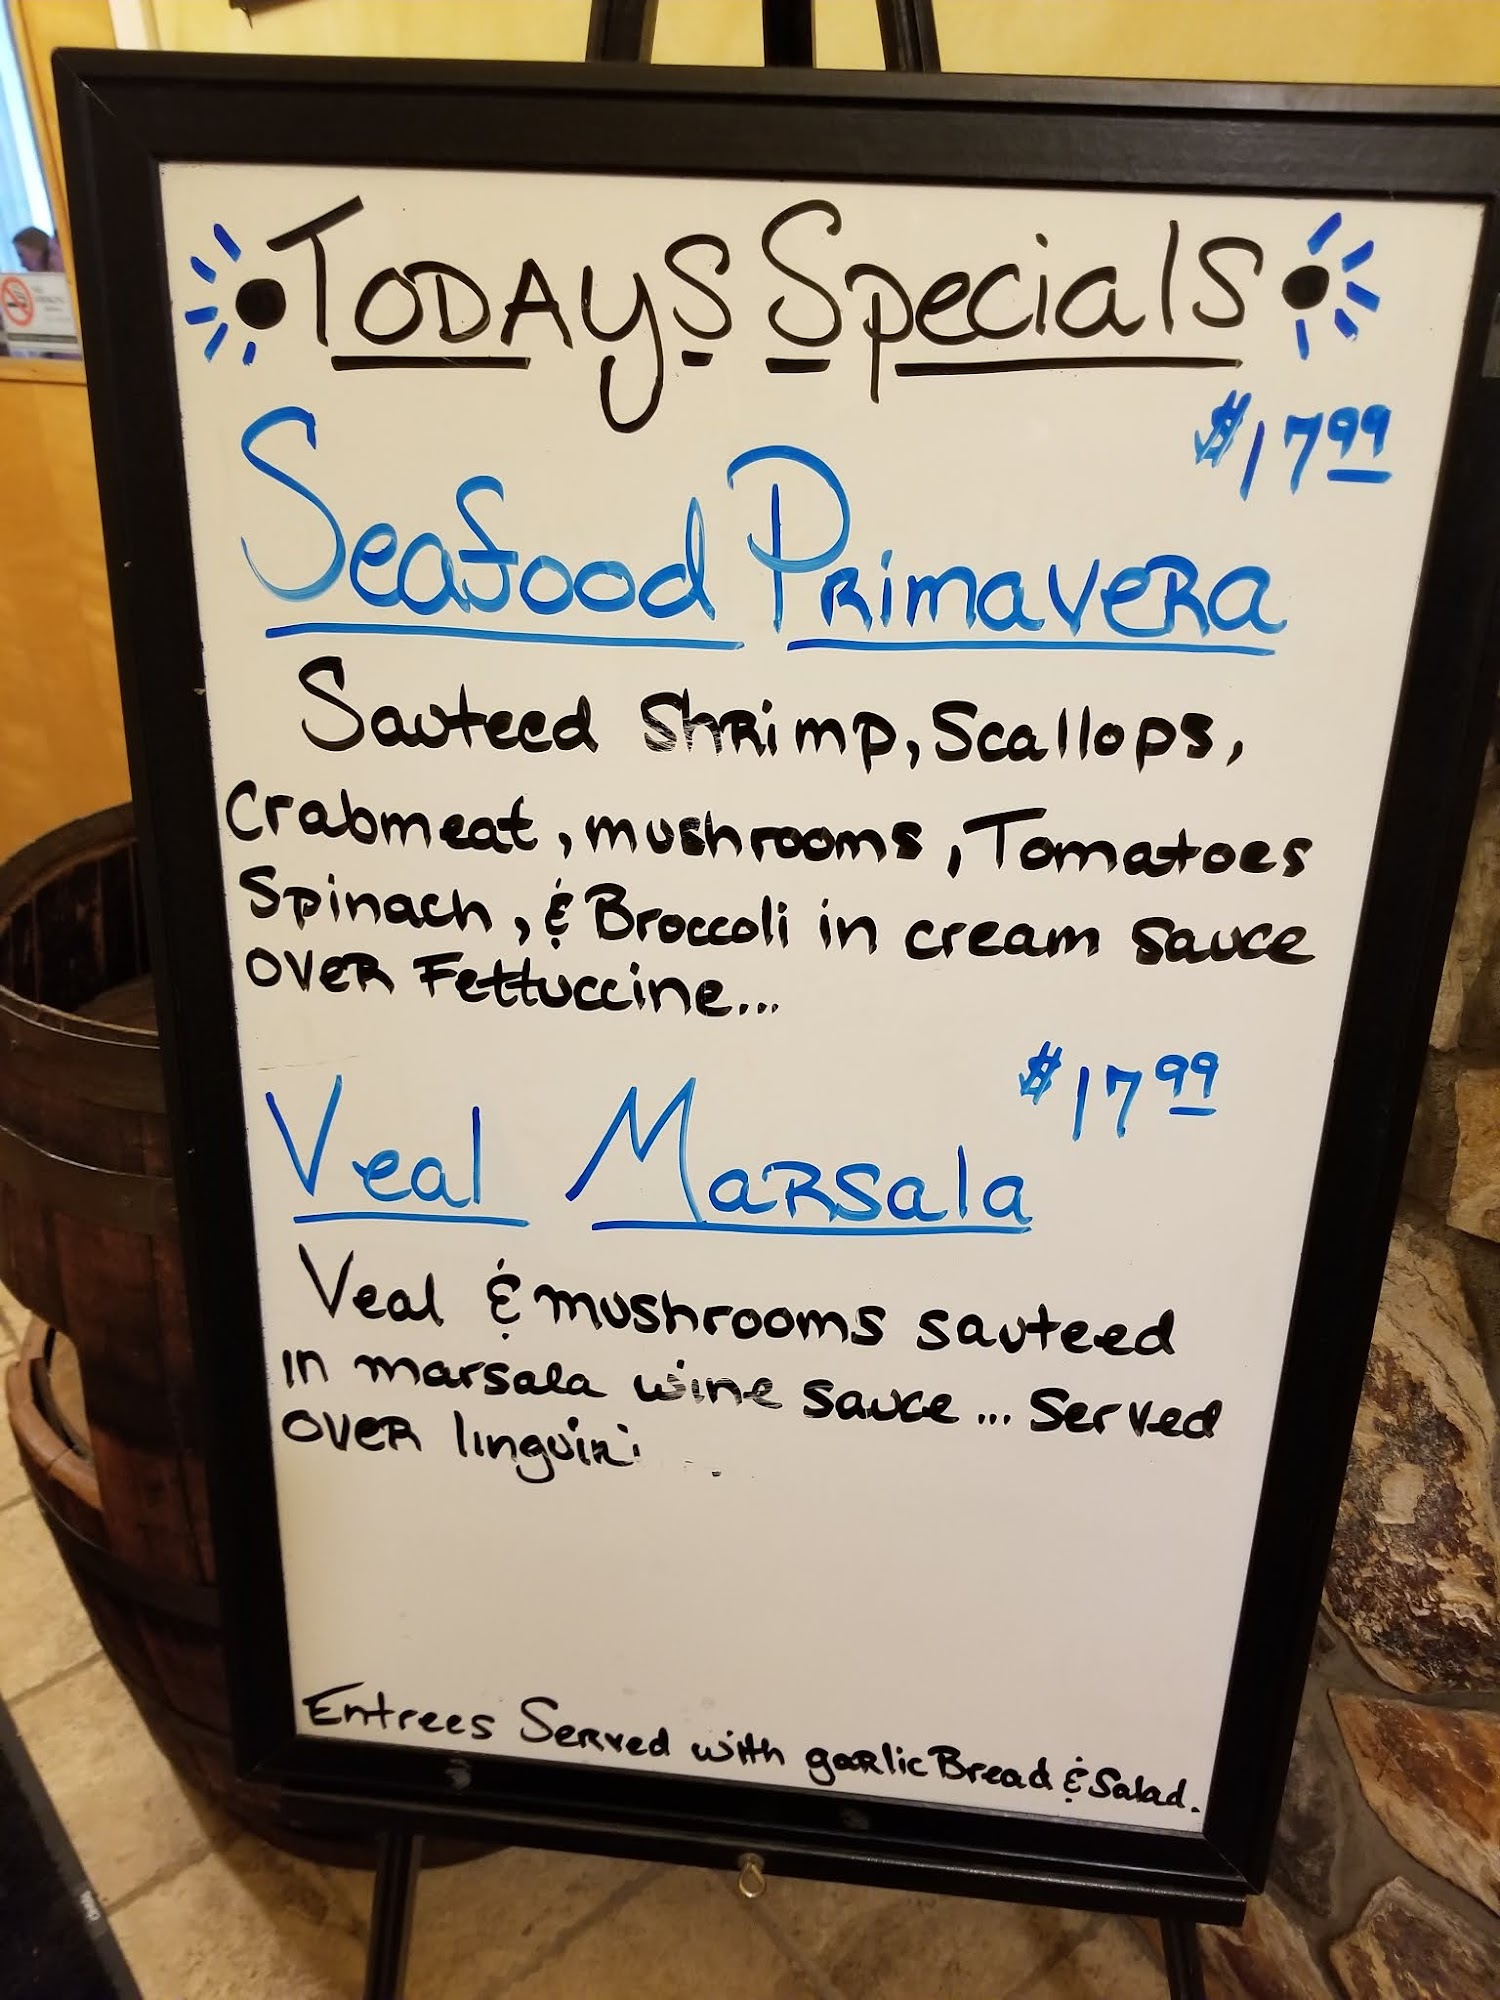 Todays Specials
$17.99
Seafood Primavera
Sauteed Shrimp, Scallops,
Crabmeat, mushrooms, Tomatoes
Spinach, & Broccoli in cream sauce
over Fettuccine...
$17.99
Veal Marsala
Veal & mushrooms sauteed
in marsala wine sauce... Served
over linguini
Entrees Served with garlic Bread & Salad.